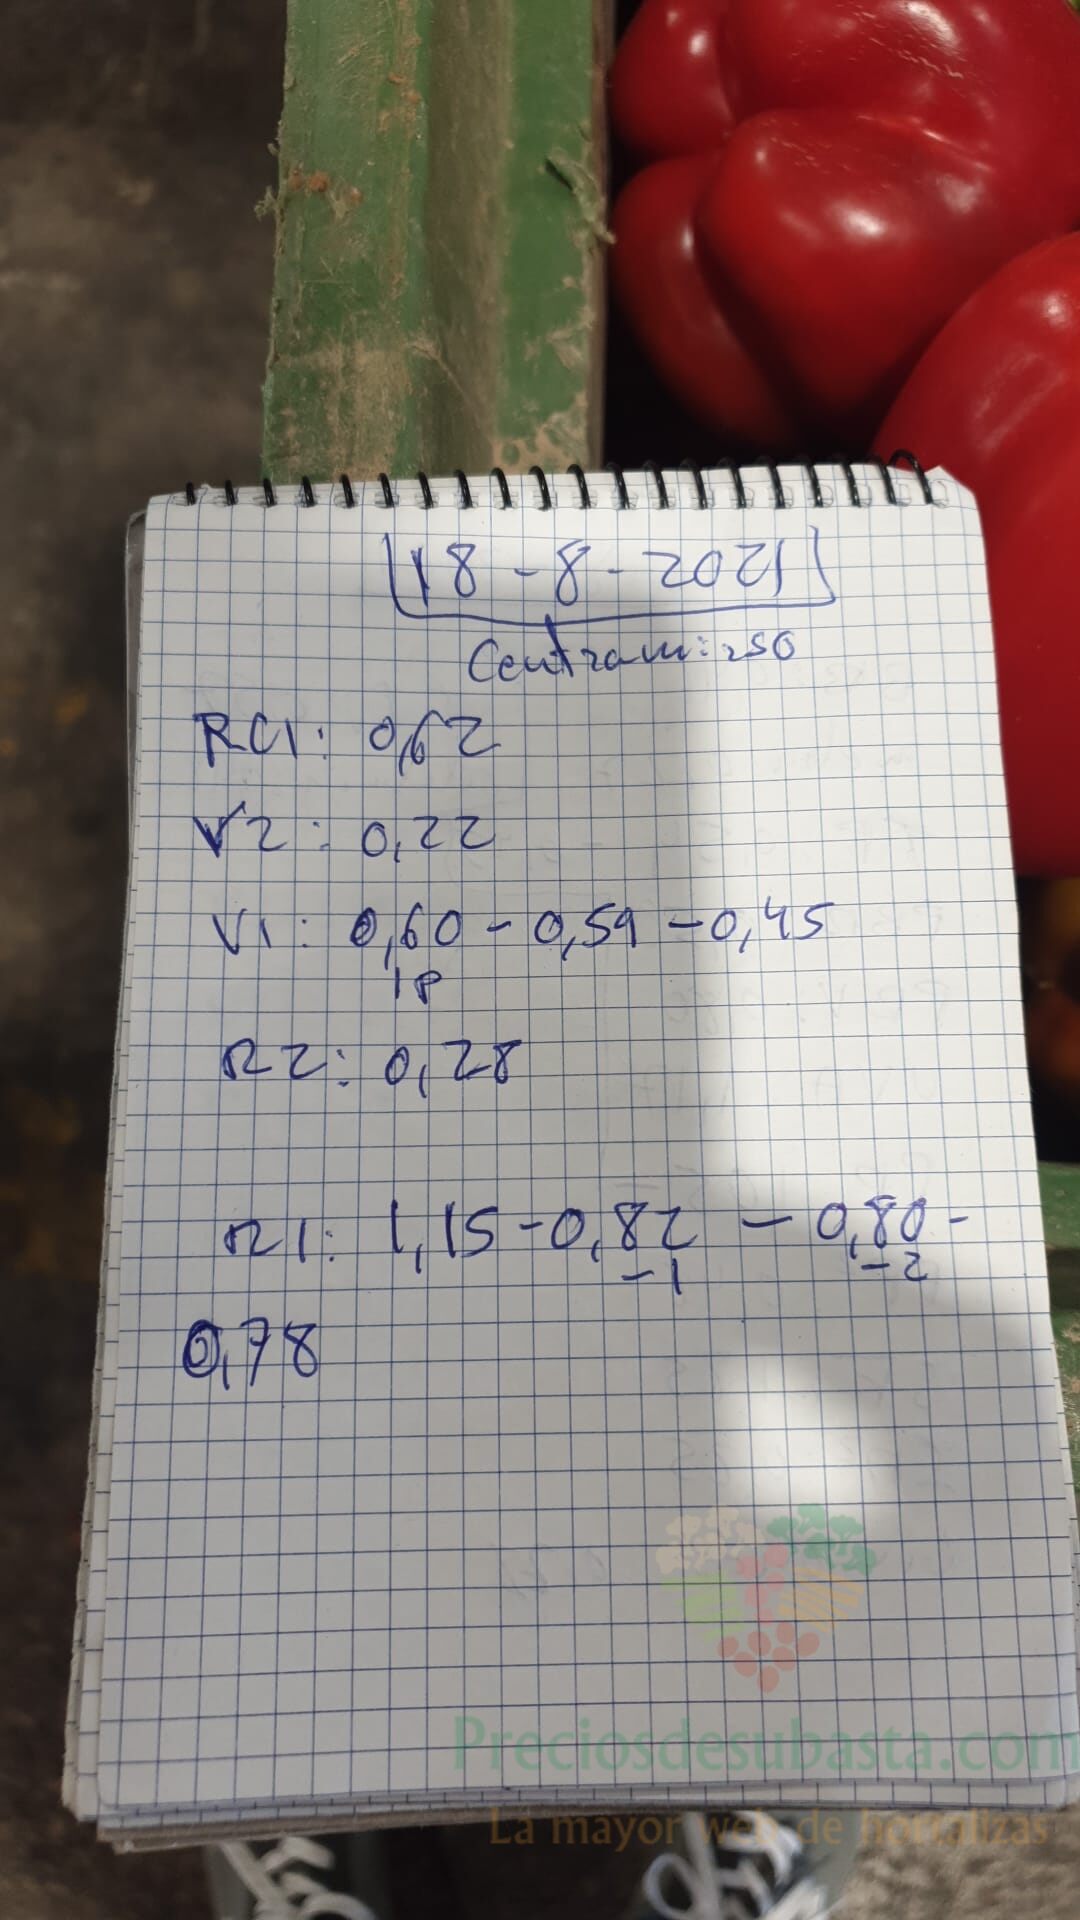 18 - 8 - 2021
Centram: 250
RC1: 0,62
V2: 0,22
V1: 0,60 - 0,59 - 0,45
1P
R2: 0,28
R1: 1,15 - 0,82 - 0,80 -
-1 -2
0,78
Preciosdesubasta.com
La mayor web de hortalizas